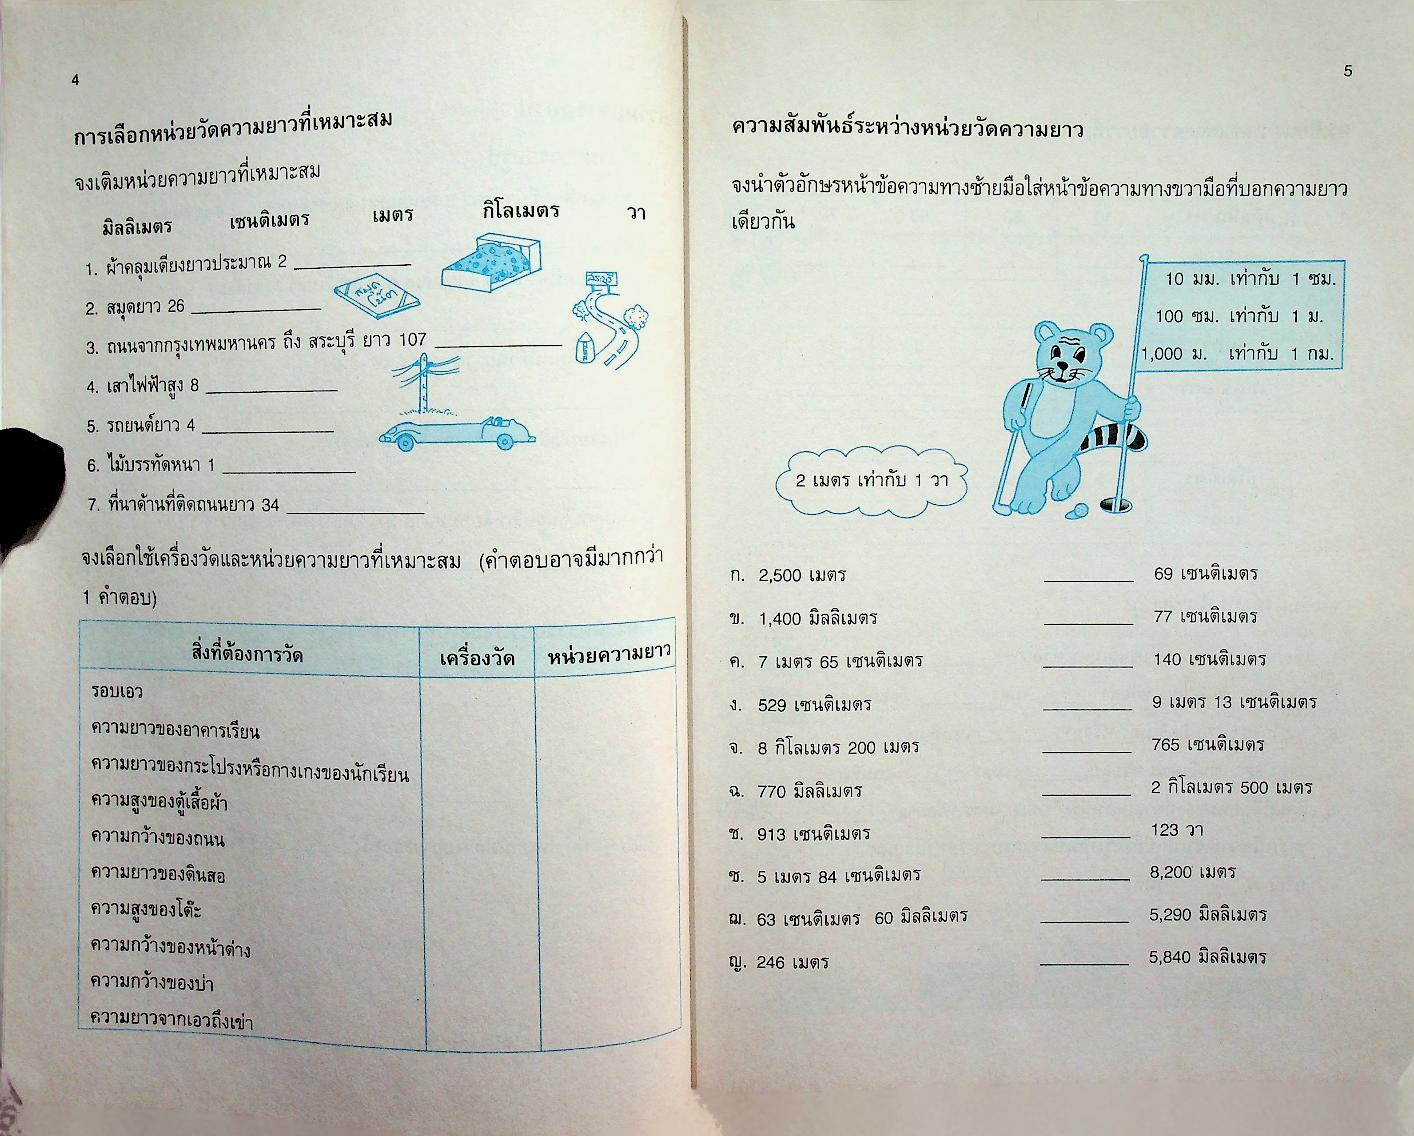 4
การเลือกหน่วยวัดความยาวที่เหมาะสม
จงเติมหน่วยความยาวที่เหมาะสม
มิลลิเมตร เซนติเมตร เมตร กิโลเมตร วา
1. ผ้าคลุมเตียงยาวประมาณ 2
2. สมุดยาว 26
สมุด
โน้ต
สระบุรี
3. ถนนจากกรุงเทพมหานคร ถึง สระบุรี ยาว 107
4. เสาไฟฟ้าสูง 8
5. รถยนต์ยาว 4
6. ไม้บรรทัดหนา 1
7. ที่นาด้านที่ติดถนนยาว 34
จงเลือกใช้เครื่องวัดและหน่วยความยาวที่เหมาะสม (คำตอบอาจมีมากกว่า
1 คำตอบ)
สิ่งที่ต้องการวัด เครื่องวัด หน่วยความยาว
รอบเอว
ความยาวของอาคารเรียน
ความยาวของกระโปรงหรือกางเกงของนักเรียน
ความสูงของตู้เสื้อผ้า
ความกว้างของถนน
ความยาวของดินสอ
ความสูงของโต๊ะ
ความกว้างของหน้าต่าง
ความกว้างของบ่า
ความยาวจากเอวถึงเข่า
5
ความสัมพันธ์ระหว่างหน่วยวัดความยาว
จงนำตัวอักษรหน้าข้อความทางซ้ายมือใส่หน้าข้อความทางขวามือที่บอกความยาว
เดียวกัน
10 มม. เท่ากับ 1 ซม.
100 ซม. เท่ากับ 1 ม.
1,000 ม. เท่ากับ 1 กม.
2 เมตร เท่ากับ 1 วา
ก. 2,500 เมตร 69 เซนติเมตร
ข. 1,400 มิลลิเมตร 77 เซนติเมตร
ค. 7 เมตร 65 เซนติเมตร 140 เซนติเมตร
ง. 529 เซนติเมตร 9 เมตร 13 เซนติเมตร
จ. 8 กิโลเมตร 200 เมตร 765 เซนติเมตร
ฉ. 770 มิลลิเมตร 2 กิโลเมตร 500 เมตร
ช. 913 เซนติเมตร 123 วา
ซ. 5 เมตร 84 เซนติเมตร 8,200 เมตร
ฌ. 63 เซนติเมตร 60 มิลลิเมตร 5,290 มิลลิเมตร
ญ. 246 เมตร 5,840 มิลลิเมตร